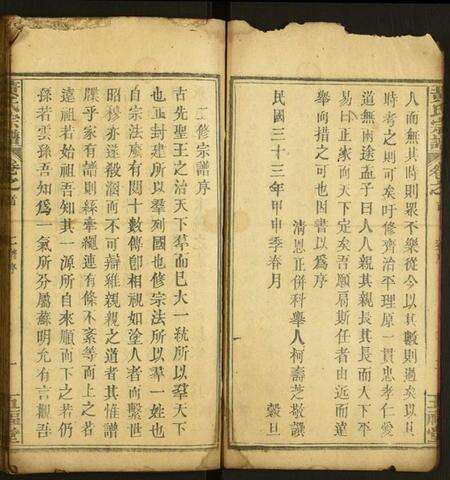 人而無其時則眾不樂從今以其數則過矣以其
時考之則可矣吁修齊治平理原一貫忠孝仁愛
道無兩途孟子曰人人親其親長其長而天下平
易曰正家而天下定矣吾願肩斯任者由近而遠
舉而措之可也因書以爲序
清恩正併科舉人柯壽芝敬譔
民國三十三年甲申季春月 穀旦
二修宗譜序
古先聖王之治天下羣而巳大一統所以羣天下
也並封建所以羣列國也修宗法所以羣一姓也
自宗法廢有閱十數傳卽相視如塗人者而繫世
昭穆亦遂殽溷而不可辯維親親之道者其惟譜
牒乎家有譜則絲牽繩連有條不紊等而上之若
遠祖若始祖吾知其一源所自來順而下之若仍
孫若雲孫吾知爲一氣所分屬蘇明允有言觀吾
黃氏宗譜
卷之首
二修序
一
黃氏宗譜
卷之